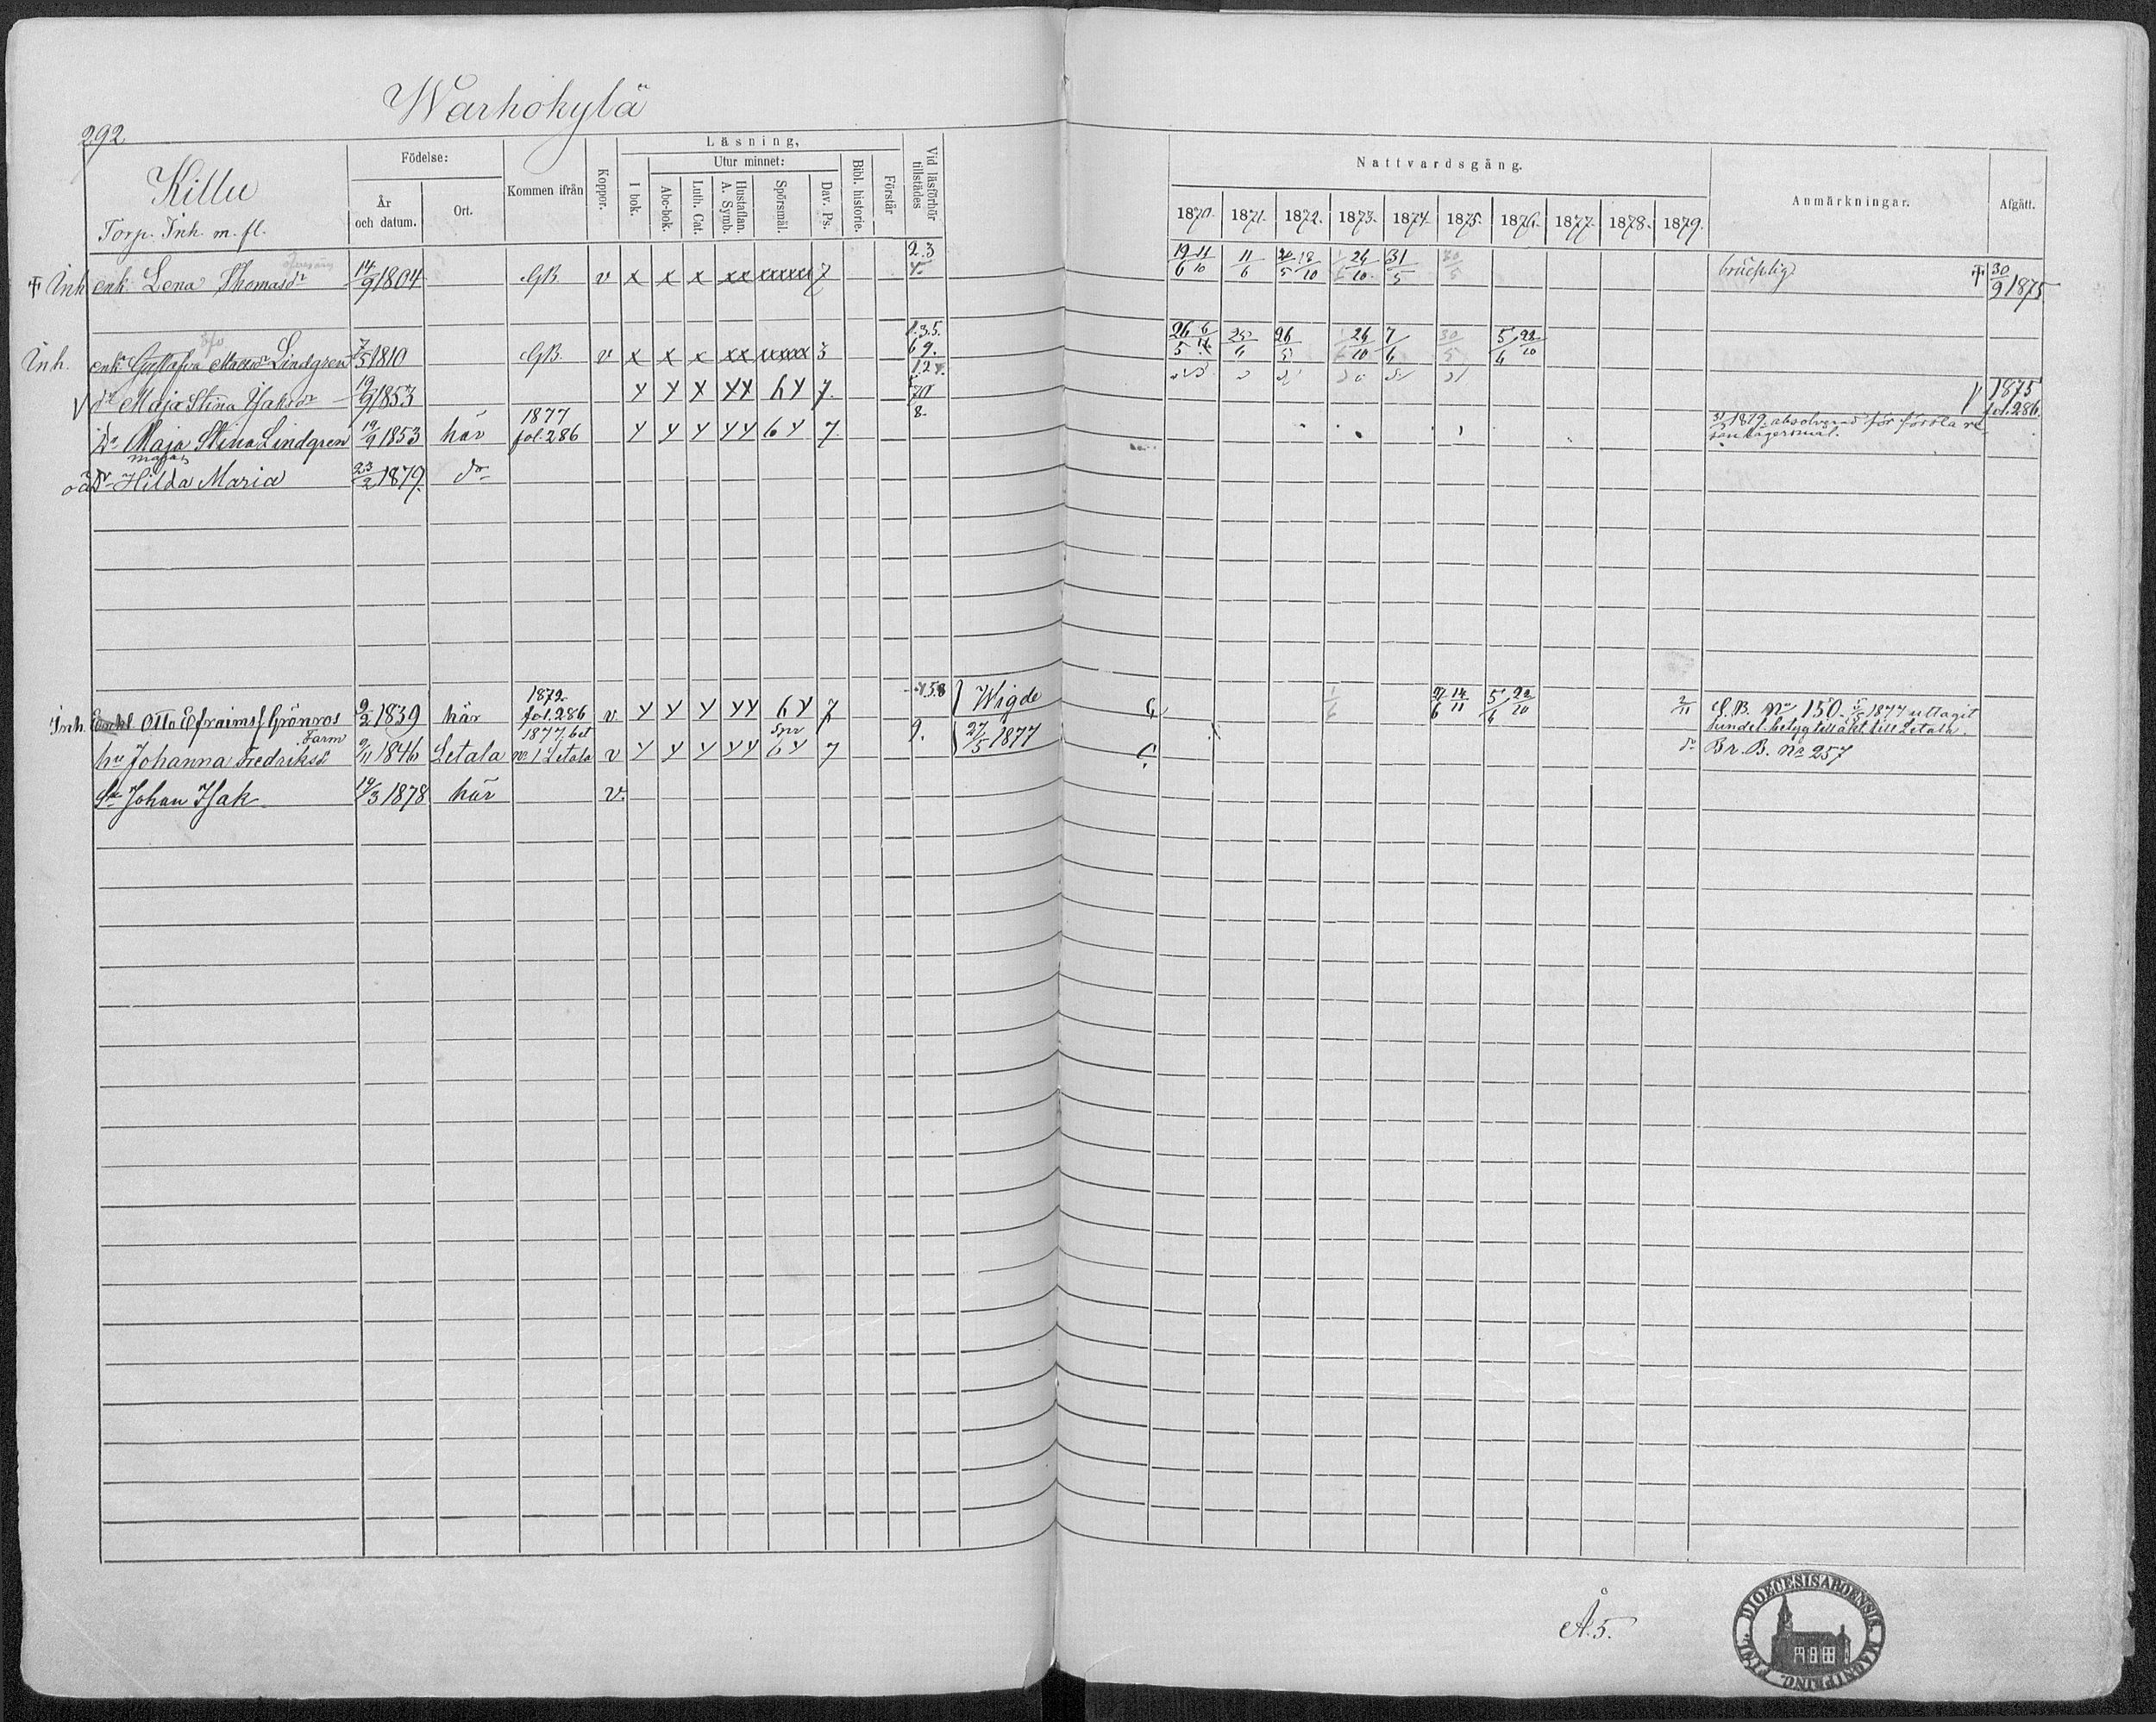 Warhokylä
292.
Killu
Torp. Inh. m. fl.
Födelse:
År och datum.
Ort.
Kommen ifrån
Koppor.
Läsning,
I bok.
Utur minnet:
Abc-bok.
Luth. Cat.
Hustaflan. A. Symb.
Spörsmål.
Dav. Ps.
Bibl. historie.
Förstår
Vid läsförhör tillstädes
Nattvardsgång.
1870. 1871. 1872. 1873. 1874. 1875. 1876. 1877. 1878. 1879.
Anmärkningar.
Afgått.
† Inh. enk. Lena Thomasdr 14/9 1804 GB. v x x x xx xxxxxx 7 2.3 4. 19/6 11/10 11/6 20/5 18/10 26/10 31/5 30/5 bräcklig † 30/9 1875
Inh. enk. Gustafva Lindgren 7/5 1810 GB. v x x x xx xxxxx 3 1.3.5. 6 9. 26/5 25/6 26/5 26/10 7/6 30/5 5/6 22/10
V dr Maja Stina Isaksdr 19/9 1853 y y x yy 6 y 7. 1.2.4. V 1875 fol. 286.
Dr Maja Stina Lindgren 19/9 1853 här 1877 fol. 286 y y y yy 6 y 7. 8. 1879 absolverad för första resan lägersmål.
Majas
oä Dr Hilda Maria 23/2 1879. do
Inh. Enkl Otto Efraimss Grönroos 9/2 1839 här 1872 fol. 286 v. y y y yy 6 y 7 4 5 8 } Wigde 1/6 14/11 5/6 22/10 2/11 S. B. no 150. 1877 uttagit
hindersbetyg till äkt. till Letala.
Farm
hu Johanna Fredriksdr 9/11 1846 Letala 1877. bet no 1 Letala v y y y yy 6 y 7 9. 27/5 1877 do Br. B. no 257
Sn Johan Isak 19/3 1878 här v.
Å. 5.
FINL. DIOECESIS ABOENSIS. MAGNIPRINC.